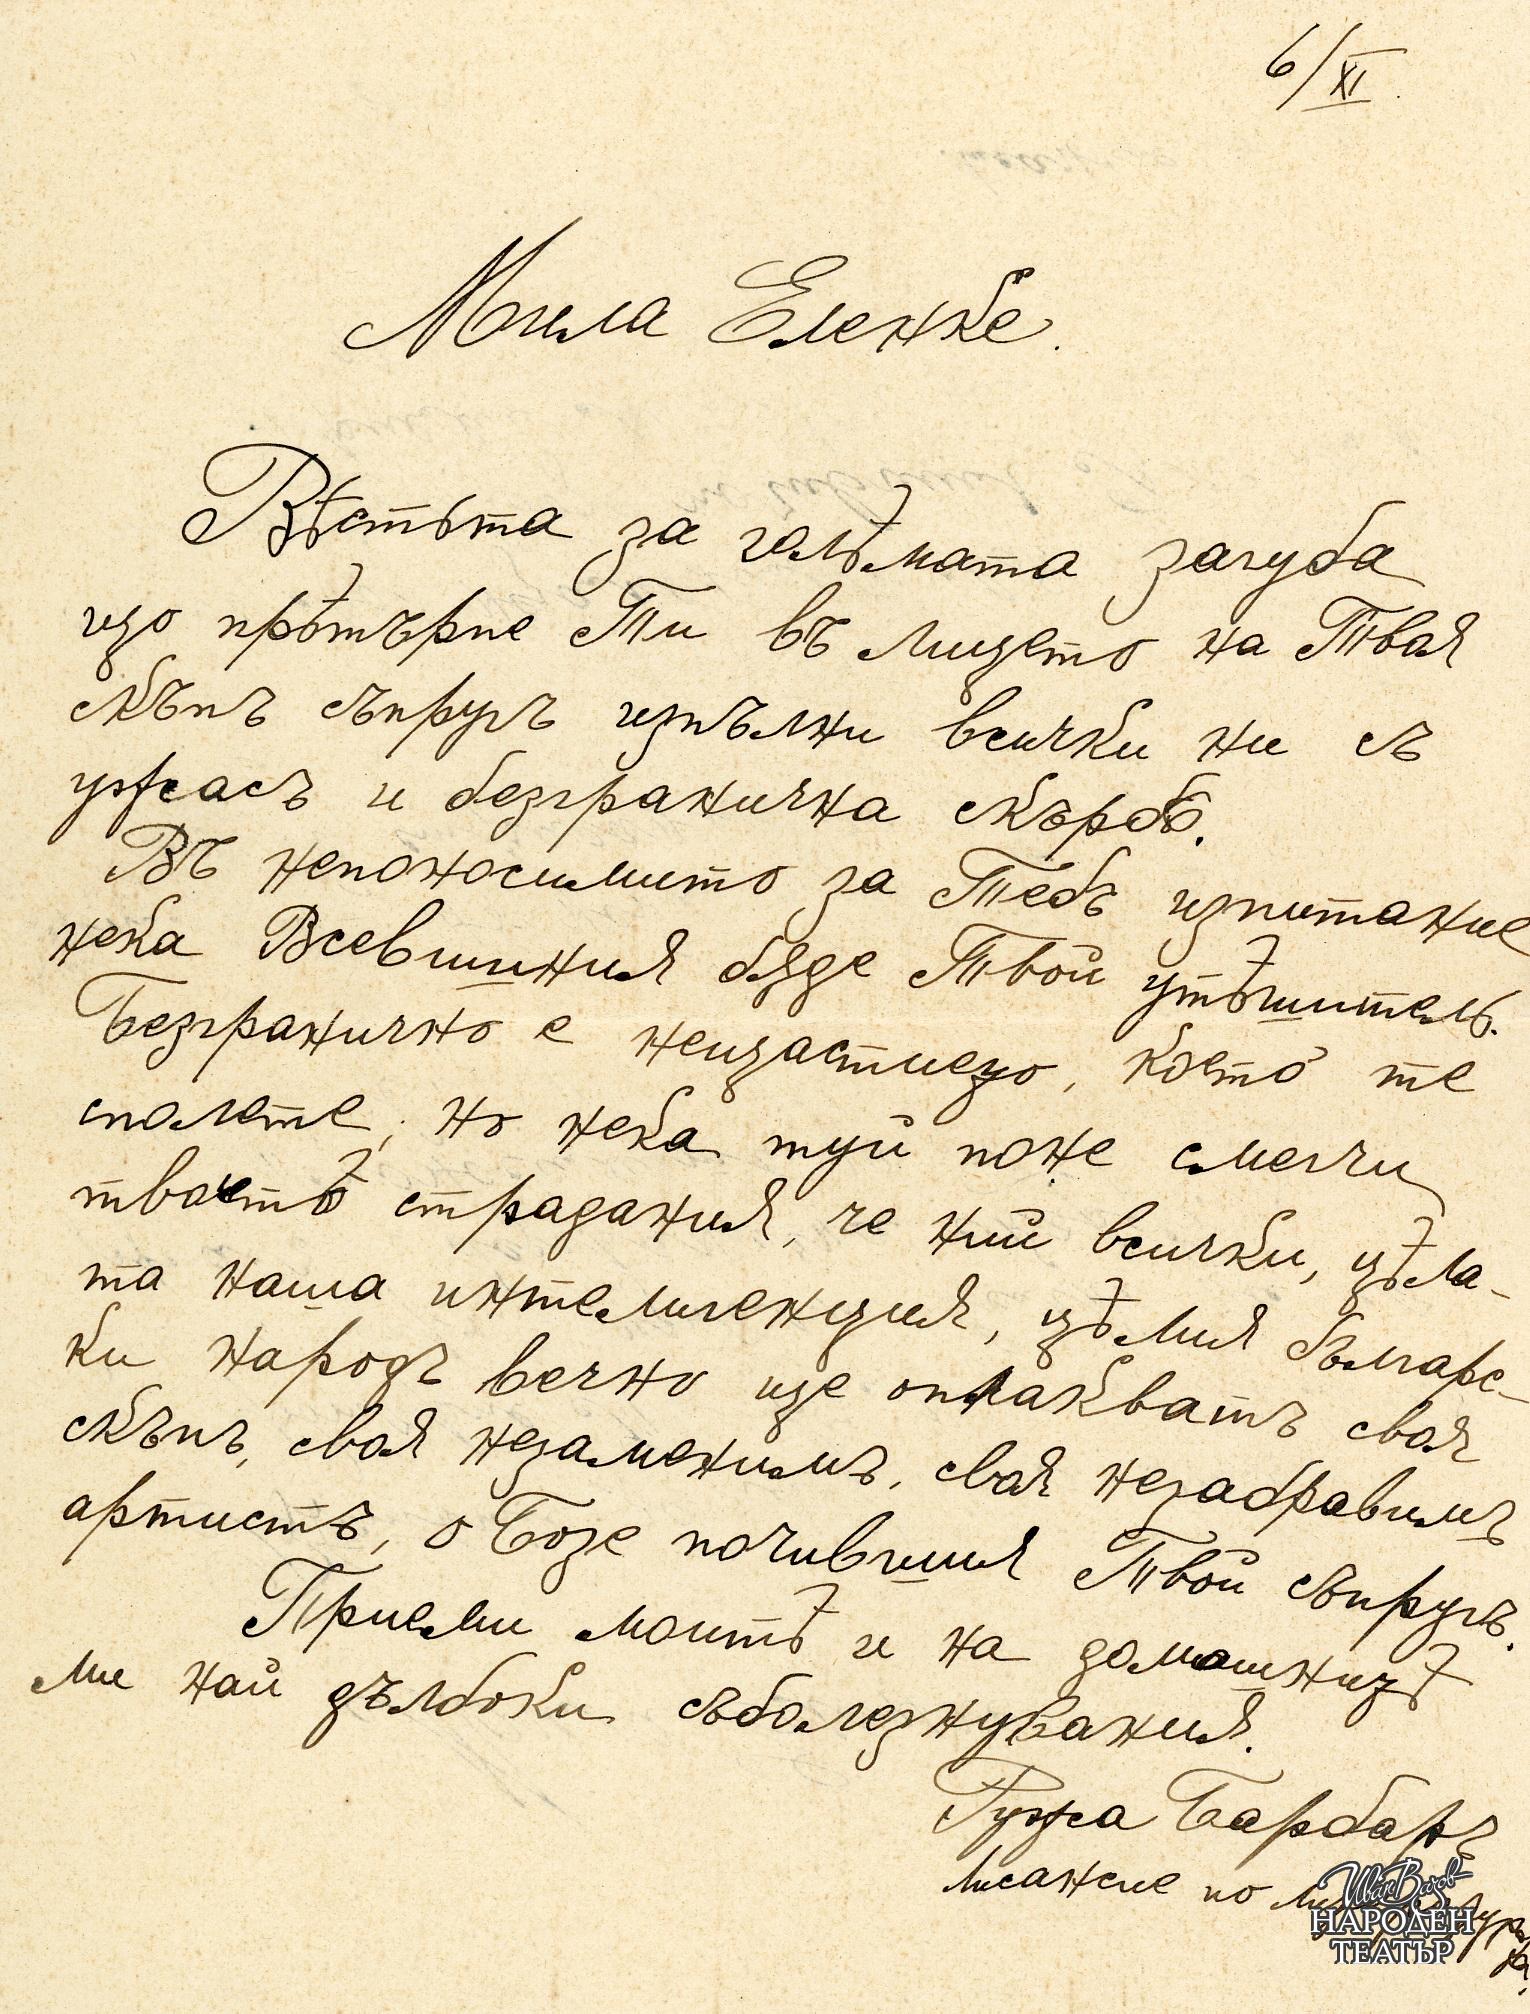 6/XI
Мила Еленке.
Вѣстьта за голѣмата загуба
що прѣтърпе Ти въ лицето на Твая
скъпъ съпругъ изпълни всички ни съ
ужасъ и безгранична скърбь.
Въ непоносимото за Тебъ изпитание
нека Всевишния бѫде Твой утѣшитель.
Безгранично е нещастиецо, което те
сполете, но нека туй поне смегчи
твоитѣ страдания, че ний всички, цѣла-
та наша интелигенция, цѣлия българс-
ки народъ вечно ще оплакватъ своя
скъпъ, своя незаменимъ, своя незабравимъ
артистъ, о Бозе почившия Твой съпругъ.
Приеми моитѣ и на домашницѣ
ми най дълбоки съболезнувания.
Ружа Барбаръ
по
Иван Вазов
НАРОДЕН
ТЕАТЪР